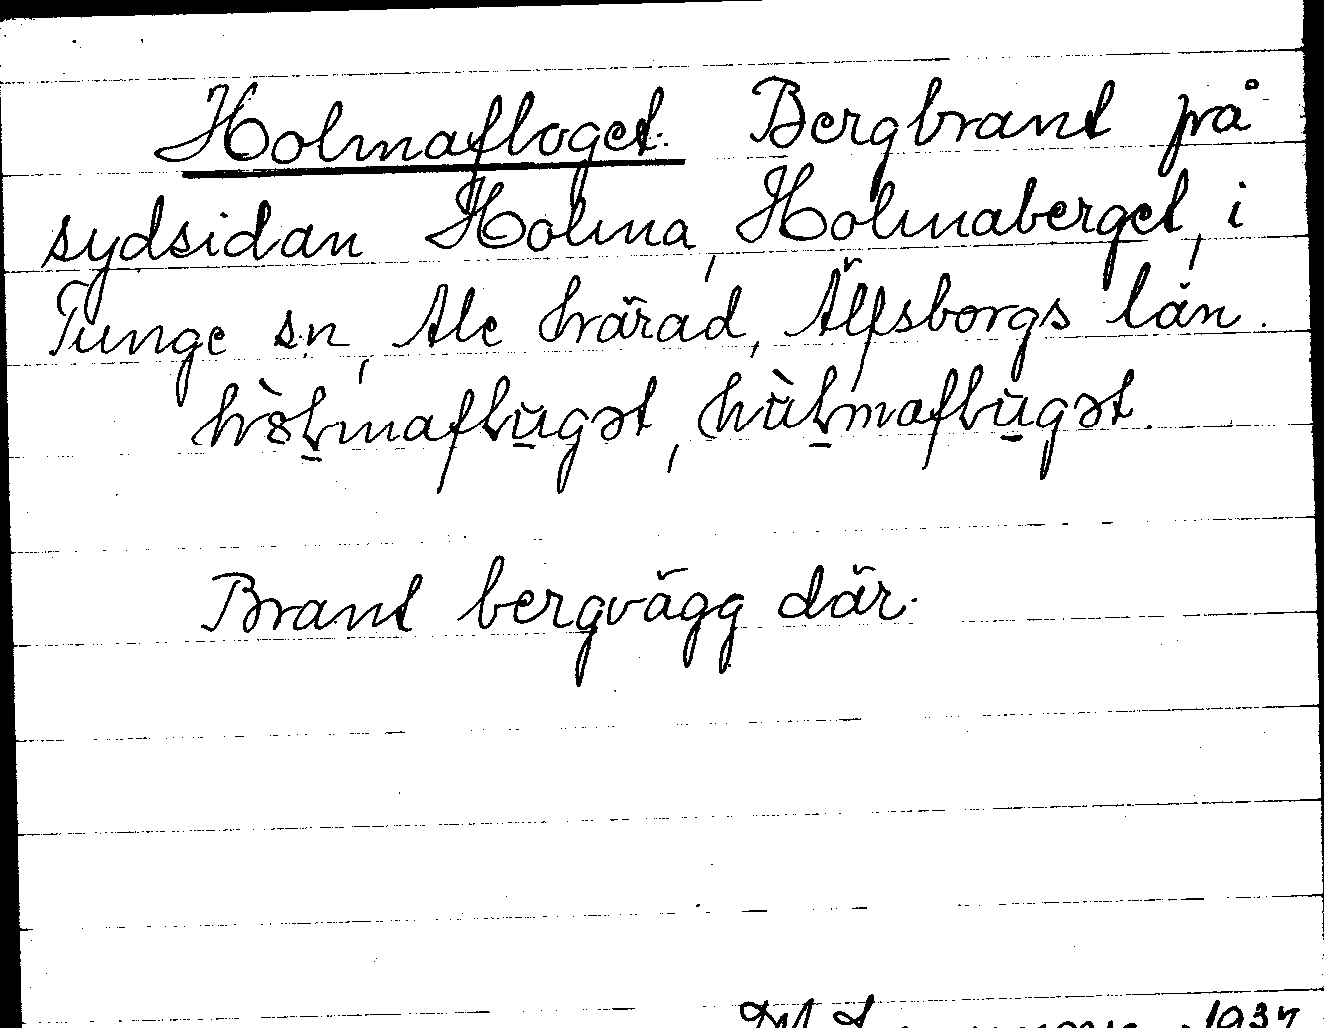 Holmafloget. Bergbrant på
sydsidan Holma, Holmaberget, i
Tunge sn, Ale härad, Älfsborgs län.
hòḻmafɫu̱gət, hùḻmafɫu̱gət.
Brant bergvägg där.
1937